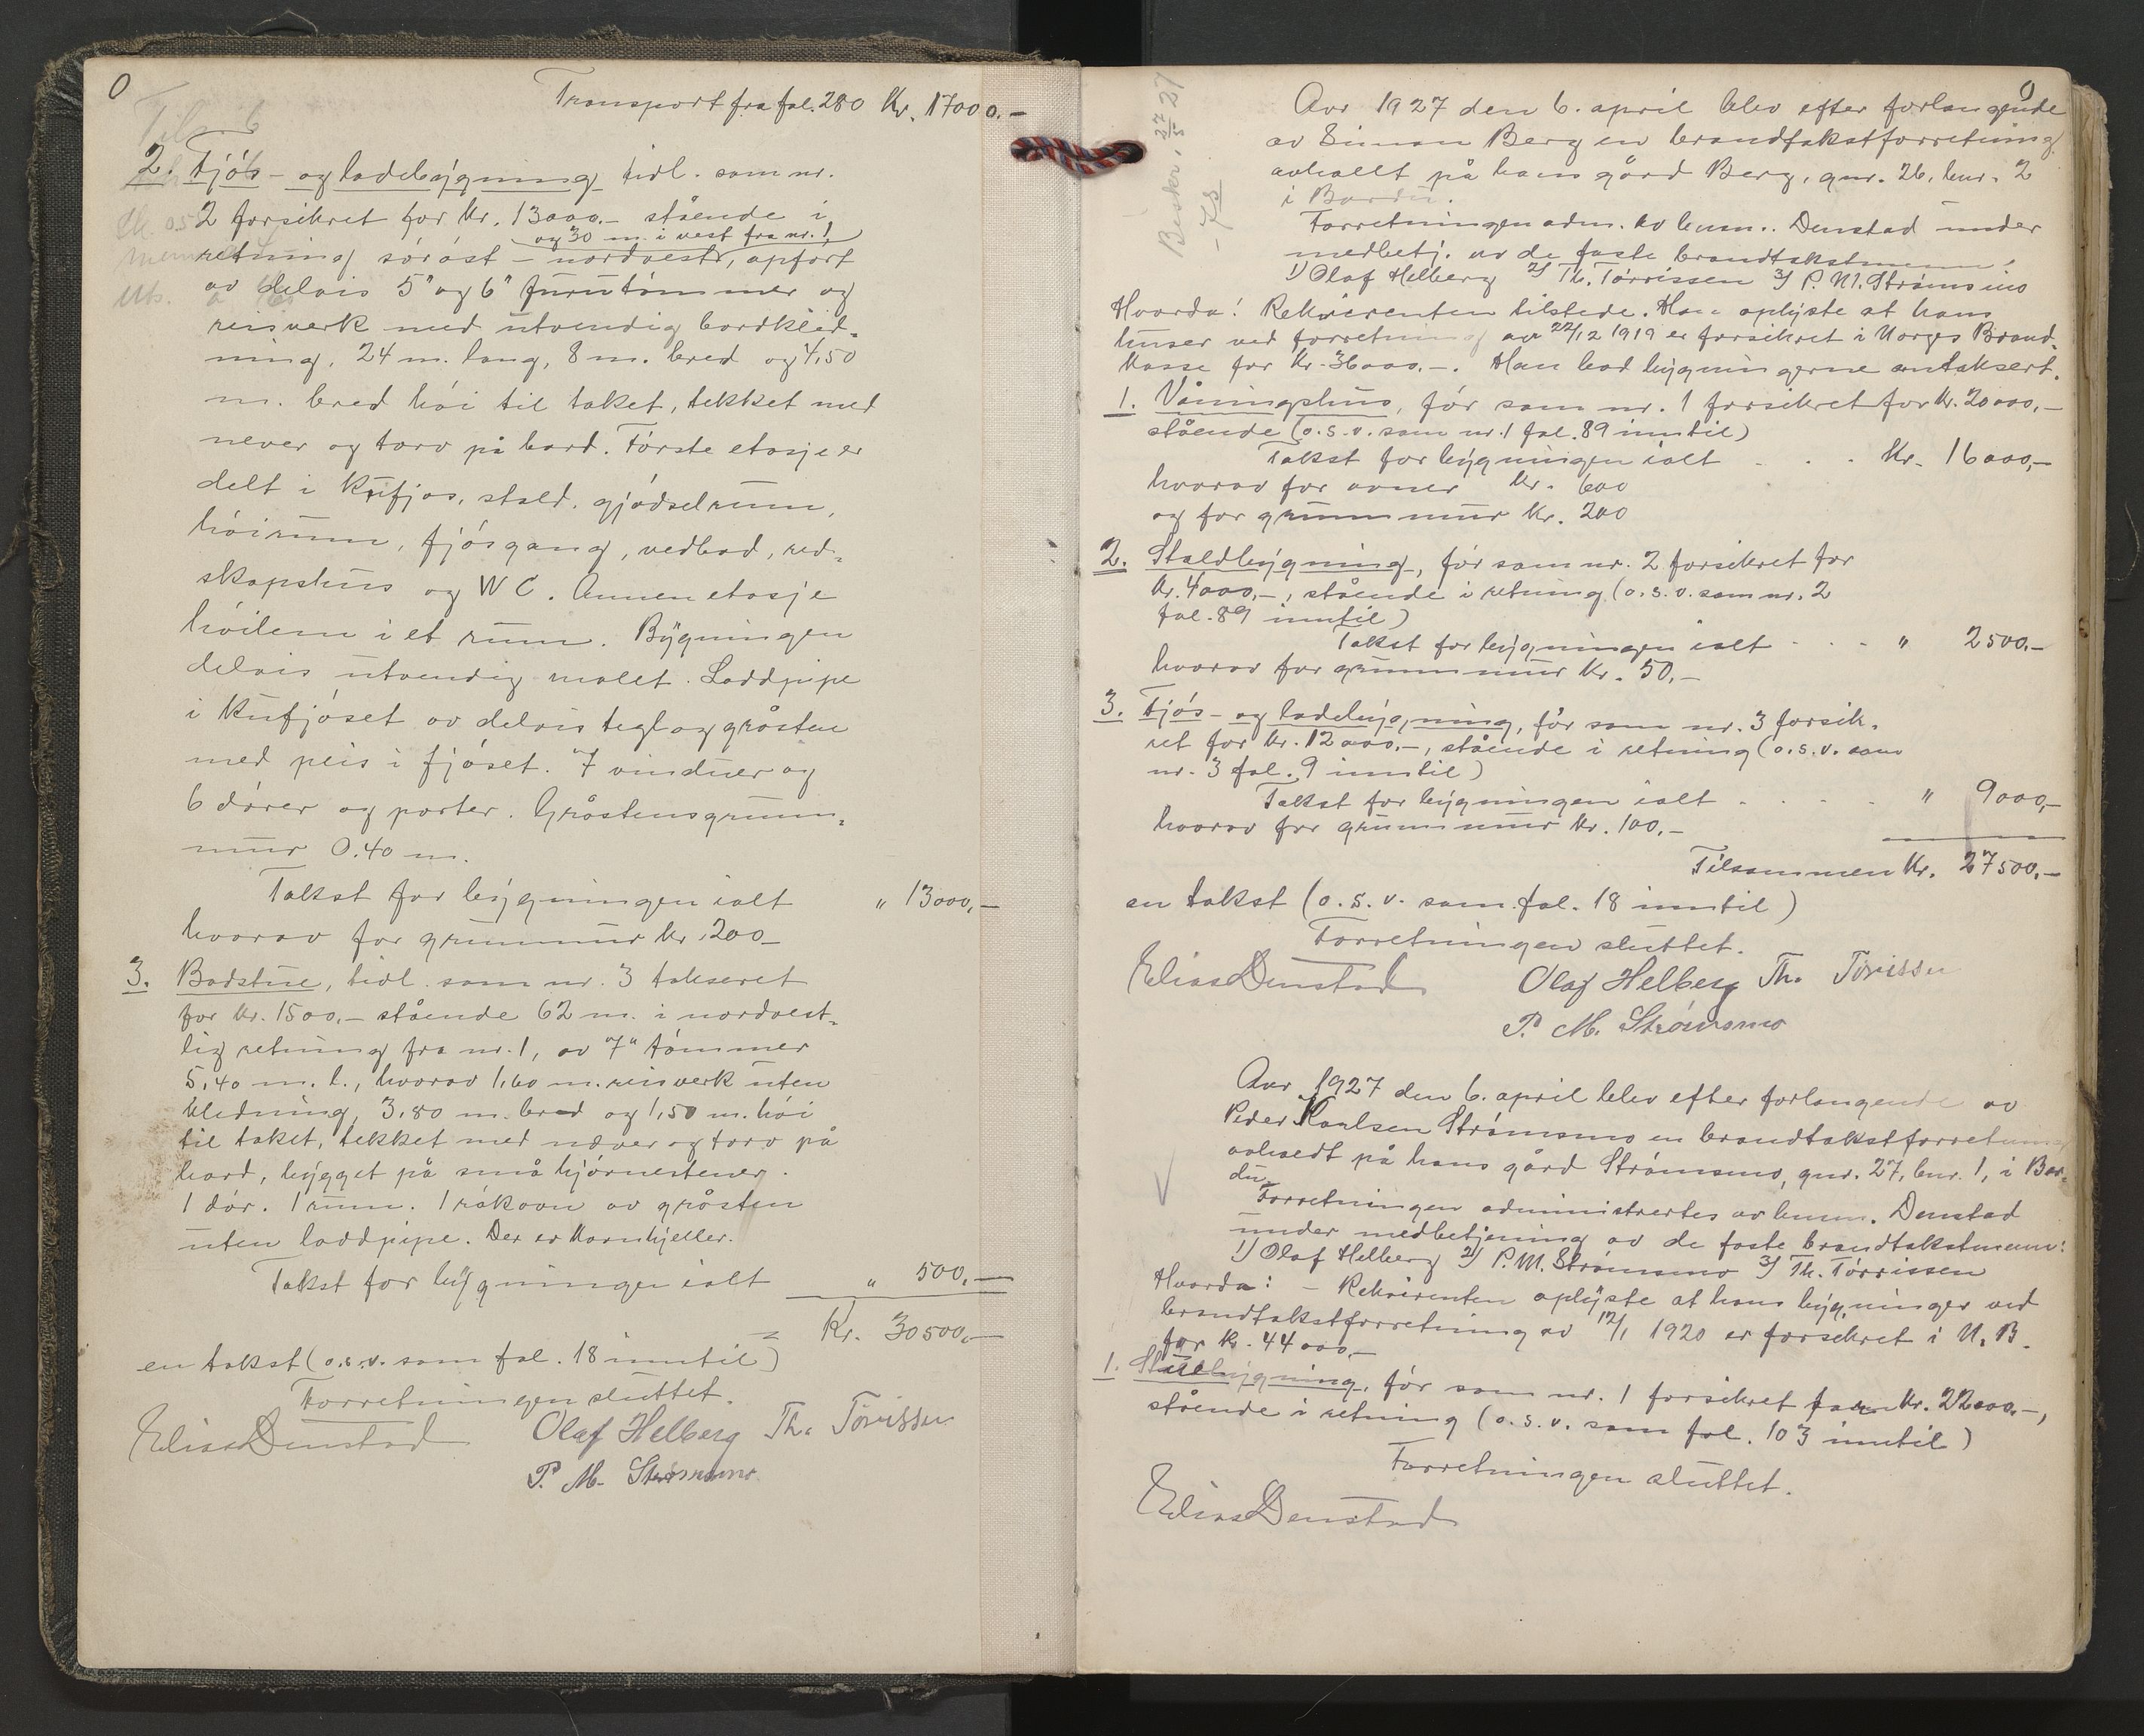 0
Transport fra fol. 280 Kr. 17000.-
2. Fjós- og ladebygning tidl. som nr.
2 forsikret for Kr. 13000.- stående i
og 30 m. i vest fra nr. 1,
retning sóróst - nordvest, opfört
av delvis 5" og 6" furutömmer og
reisverk med utvendig bordkled-
ning, 24 m. lang, 8 m. bred og 4,50
m. bred hói til taket, tekket med
never og torv på bord. Fórste etasje er
delt i Kufjós, stald, gjódselrum,
hóirum, fjósgang, vedbod, red-
skapshus og WC. Annen etasje
hóilem i et rum. Bygningen
delvis utvendig malet. Loddpipe
i Kufjóset av delvis tegl og gråsten
med peis i fjóset. 7 vinduer og
6 dórer og porter. Gråstensgrunn-
mur 0.40 m.
Takst for bygningen ialt " 13000,-
hvorav for grunnmur kr. 200-
3. Badstue, tidl. som nr. 3 takseret
for kr. 1500,- stående 62 m. i nordvest-
lig retning fra nr. 1, av 7" tómmer
5,40 m. l., hvorav 1,60 m. reisverk uten
kledning, 3,80 m. bred og 1,50 m. hói
til taket, tekket med næver og torv på
bord, bygget på små hjórnestener.
1 dór. 1 rum. 1 rókovn av gråsten
uten loddpipe. Der er Kornhjeller.
Takst for bygningen ialt " 500,-
Kr. 30500,-
en takst (o.s.v. som fol. 18 inntil)
Forretningen sluttet.
Elias Denstad Olaf Helberg Th. Tórissen
P. M. Strómsmo
0
Beskr. 27/5 27
Aar 1927 den 6. april blev efter forlangende
av Simon Berg en brandtakstforretning
avholdt på hans gård Berg, gnr. 26, bnr. 2
i Bardu.
Forretningen adm. av lensm. Denstad under
medbetj. av de faste brandtakstmenn,
1) Olaf Helberg 2) Th. Tórrissen 3) P. M. Strómsmo
Hvorda: Rekvirenten tilstede. Han oplyste at hans
huser ved forretning av 22/12 1919 er forsikret i Norges Brand-
kasse for Kr. 36000.-. Han bad bygningerne omtaksert.
1. Våningshus, fór som nr. 1 forsikret for Kr. 20000,-
stående (o.s.v. som nr. 1 fol. 89 inntil)
Takst for bygningen ialt . . . Kr. 16000,-
hvorav for ovner kr. 600
og for grunnmur kr. 200
2. Staldbygning, fór som nr. 2 forsikret for
kr. 4000,-, stående i retning (o.s.v. som nr. 2
fol. 89 inntil)
Takst for bygningen ialt . . . " 2500.-
hvorav for grunnmur kr. 50,-
3. Fjós- og ladebygning, fór som nr. 3 forsik-
ret for kr. 12000.-, stående i retning (o.s.v. som
nr. 3 fol. 9 inntil)
Takst for bygningen ialt . . . . " 9000,-
hvorav for grunnmur kr. 100,-
Tilsammen Kr. 27500,-
en takst (o.s.v. som fol. 18 inntil)
Forretningen sluttet.
Elias Denstad Olaf Helberg Th. Tórissen
P. M. Strómsmo
Aar 1927 den 6. april blev efter forlangende av
Peder Karlsen Strómsmo en brandtakstforretning
avholdt på hans gård Strómsmo, gnr. 27, bnr. 1, i Bar-
du.
Forretningen administrertes av lensm. Denstad
under medbetjening av de faste brandtakstmenn:
1) Olaf Helberg 2) P. M. Strómsmo 3) Th. Tórrissen
Hvorda: - Rekvirenten oplyste at hans bygninger ved
brandtakstforretning av 12/1 1920 er forsikret i N. B.
for kr. 44000,-
1. Stuebygning, fór som nr. 1 forsikret for kr. 22000.-,
stående i retning (o.s.v. som fol. 103 inntil)
Forretningen sluttet.
Elias Denstad